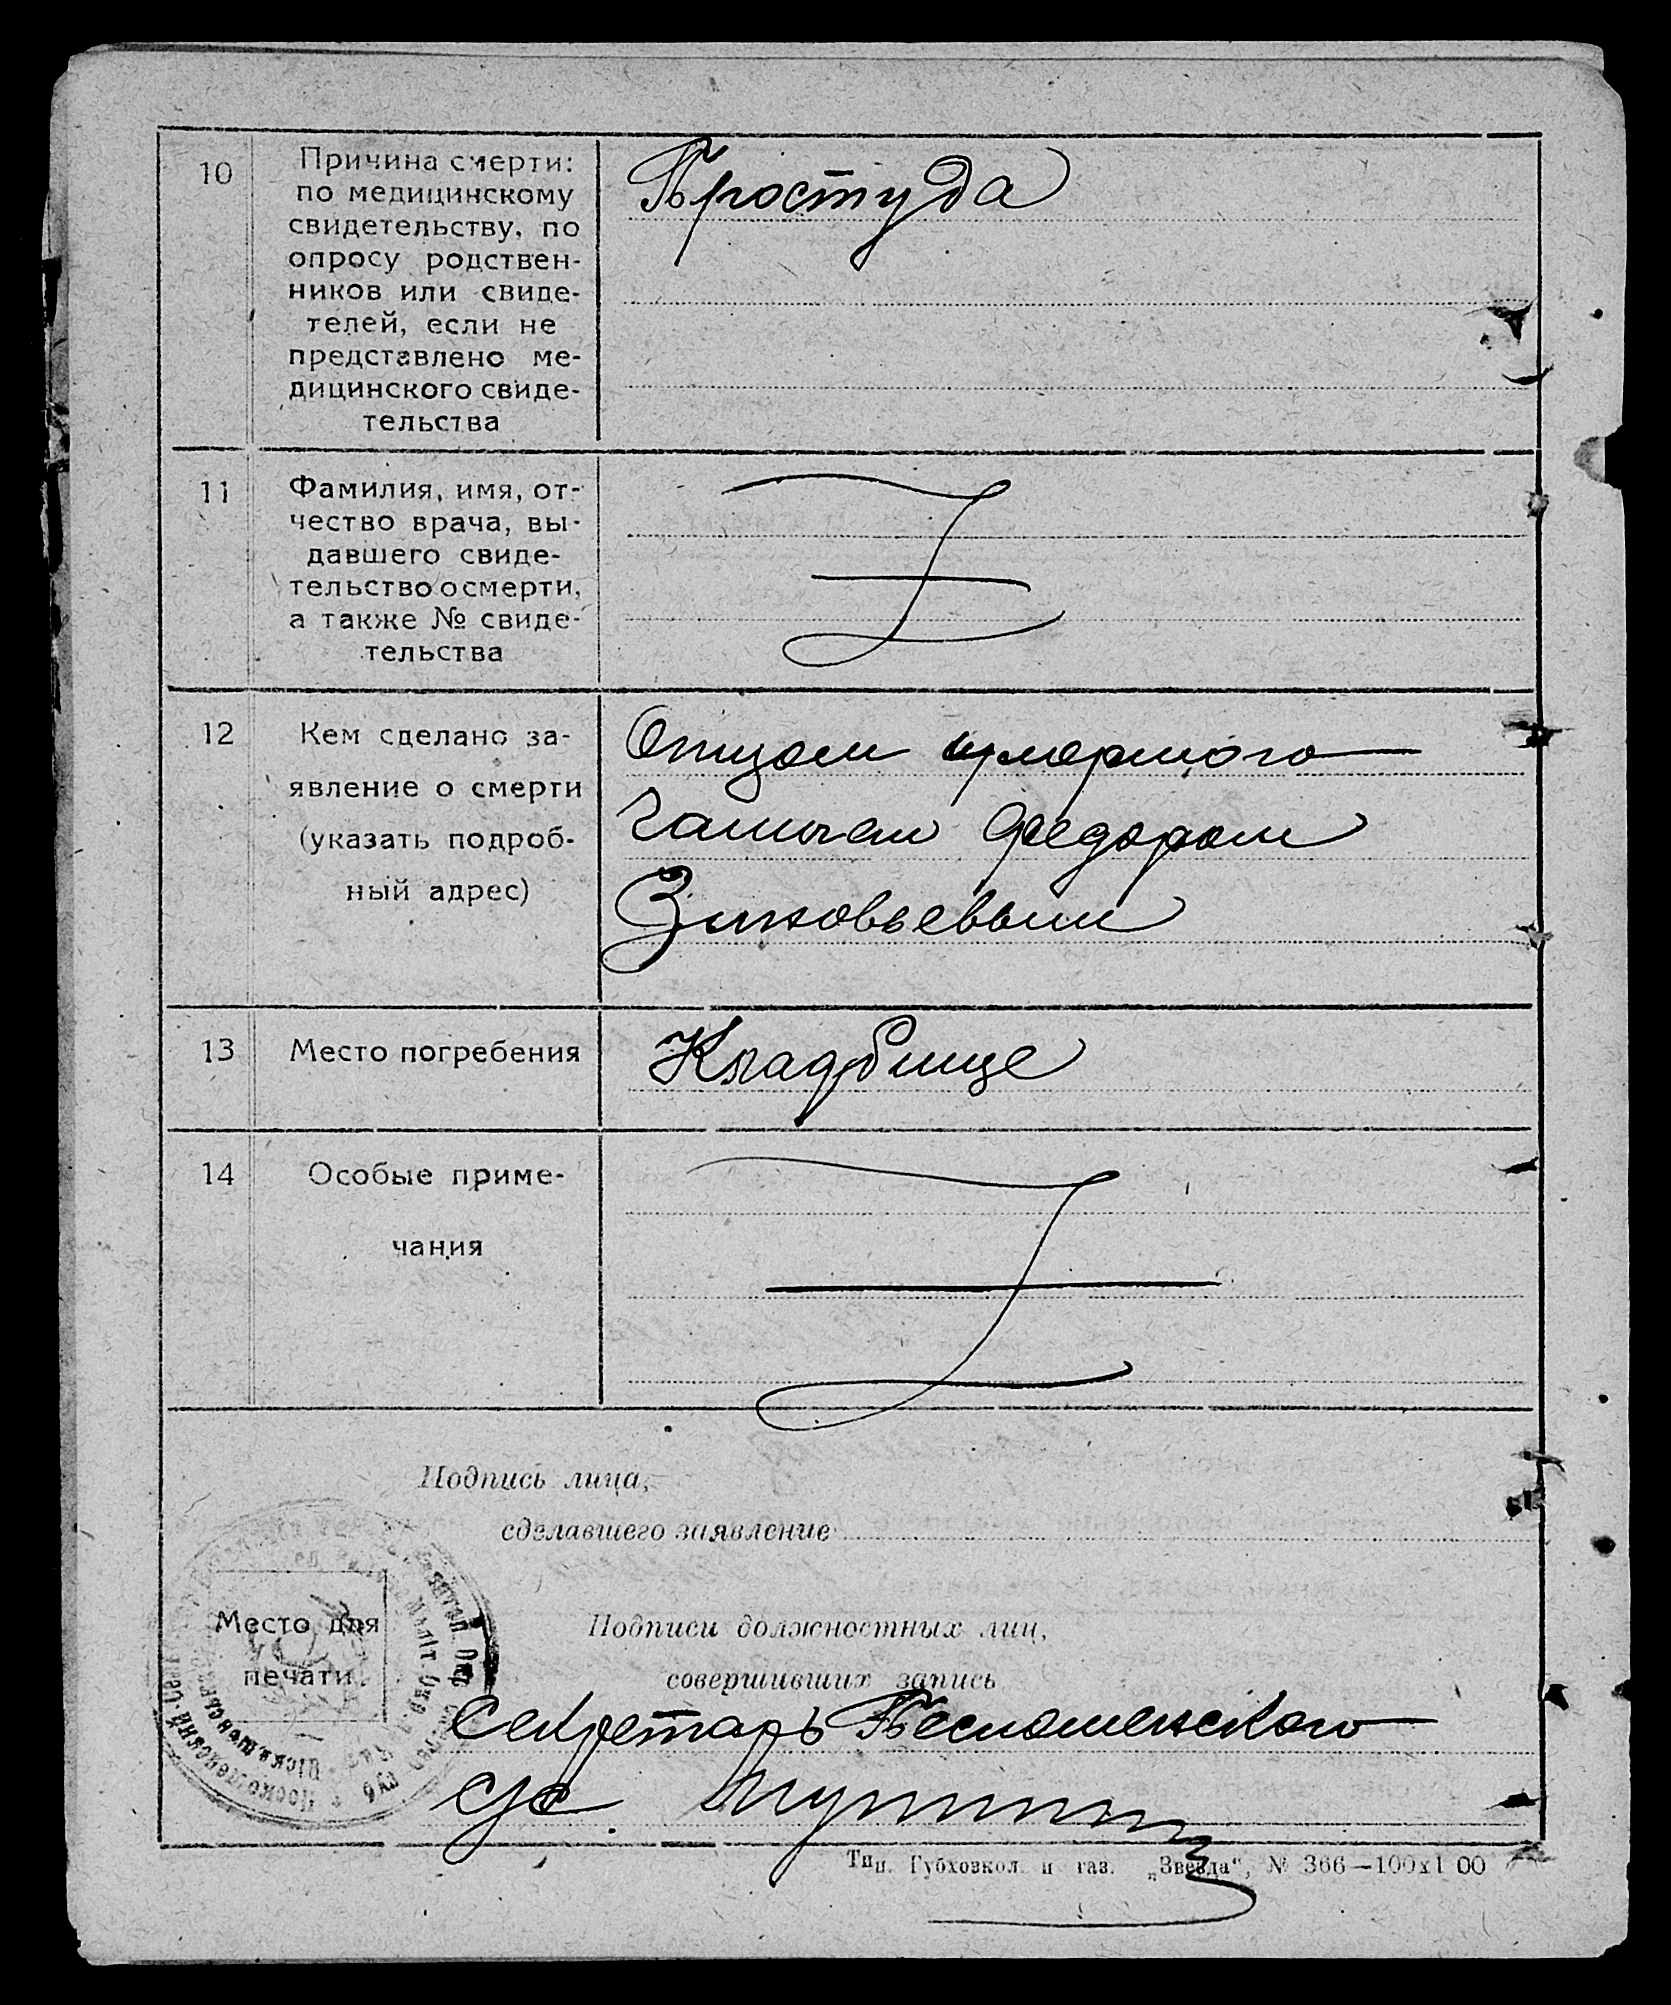 10
Причина смерти:
по медицинскому
свидетельству, по
опросу родствен-
ников или свиде-
телей, если не
представлено ме-
дицинского свиде-
тельства
Простуда
11
Фамилия, имя, от-
чество врача, вы-
давшего свиде-
тельство о смерти,
а также № свиде-
тельства
12
Кем сделано за-
явление о смерти
(указать подроб-
ный адрес)
Отцом умершого
Федором
Зиновьевым
13
Место погребения
Кладбище
14
Особые приме-
чания
Подпись лица,
сделавшего заявление
Место для
печати
Подписи должностных лиц,
совершивших запись
Секретарь
с/с
Тип. Губхозкол. и газ. „Звезда“, № 366—100х1 00